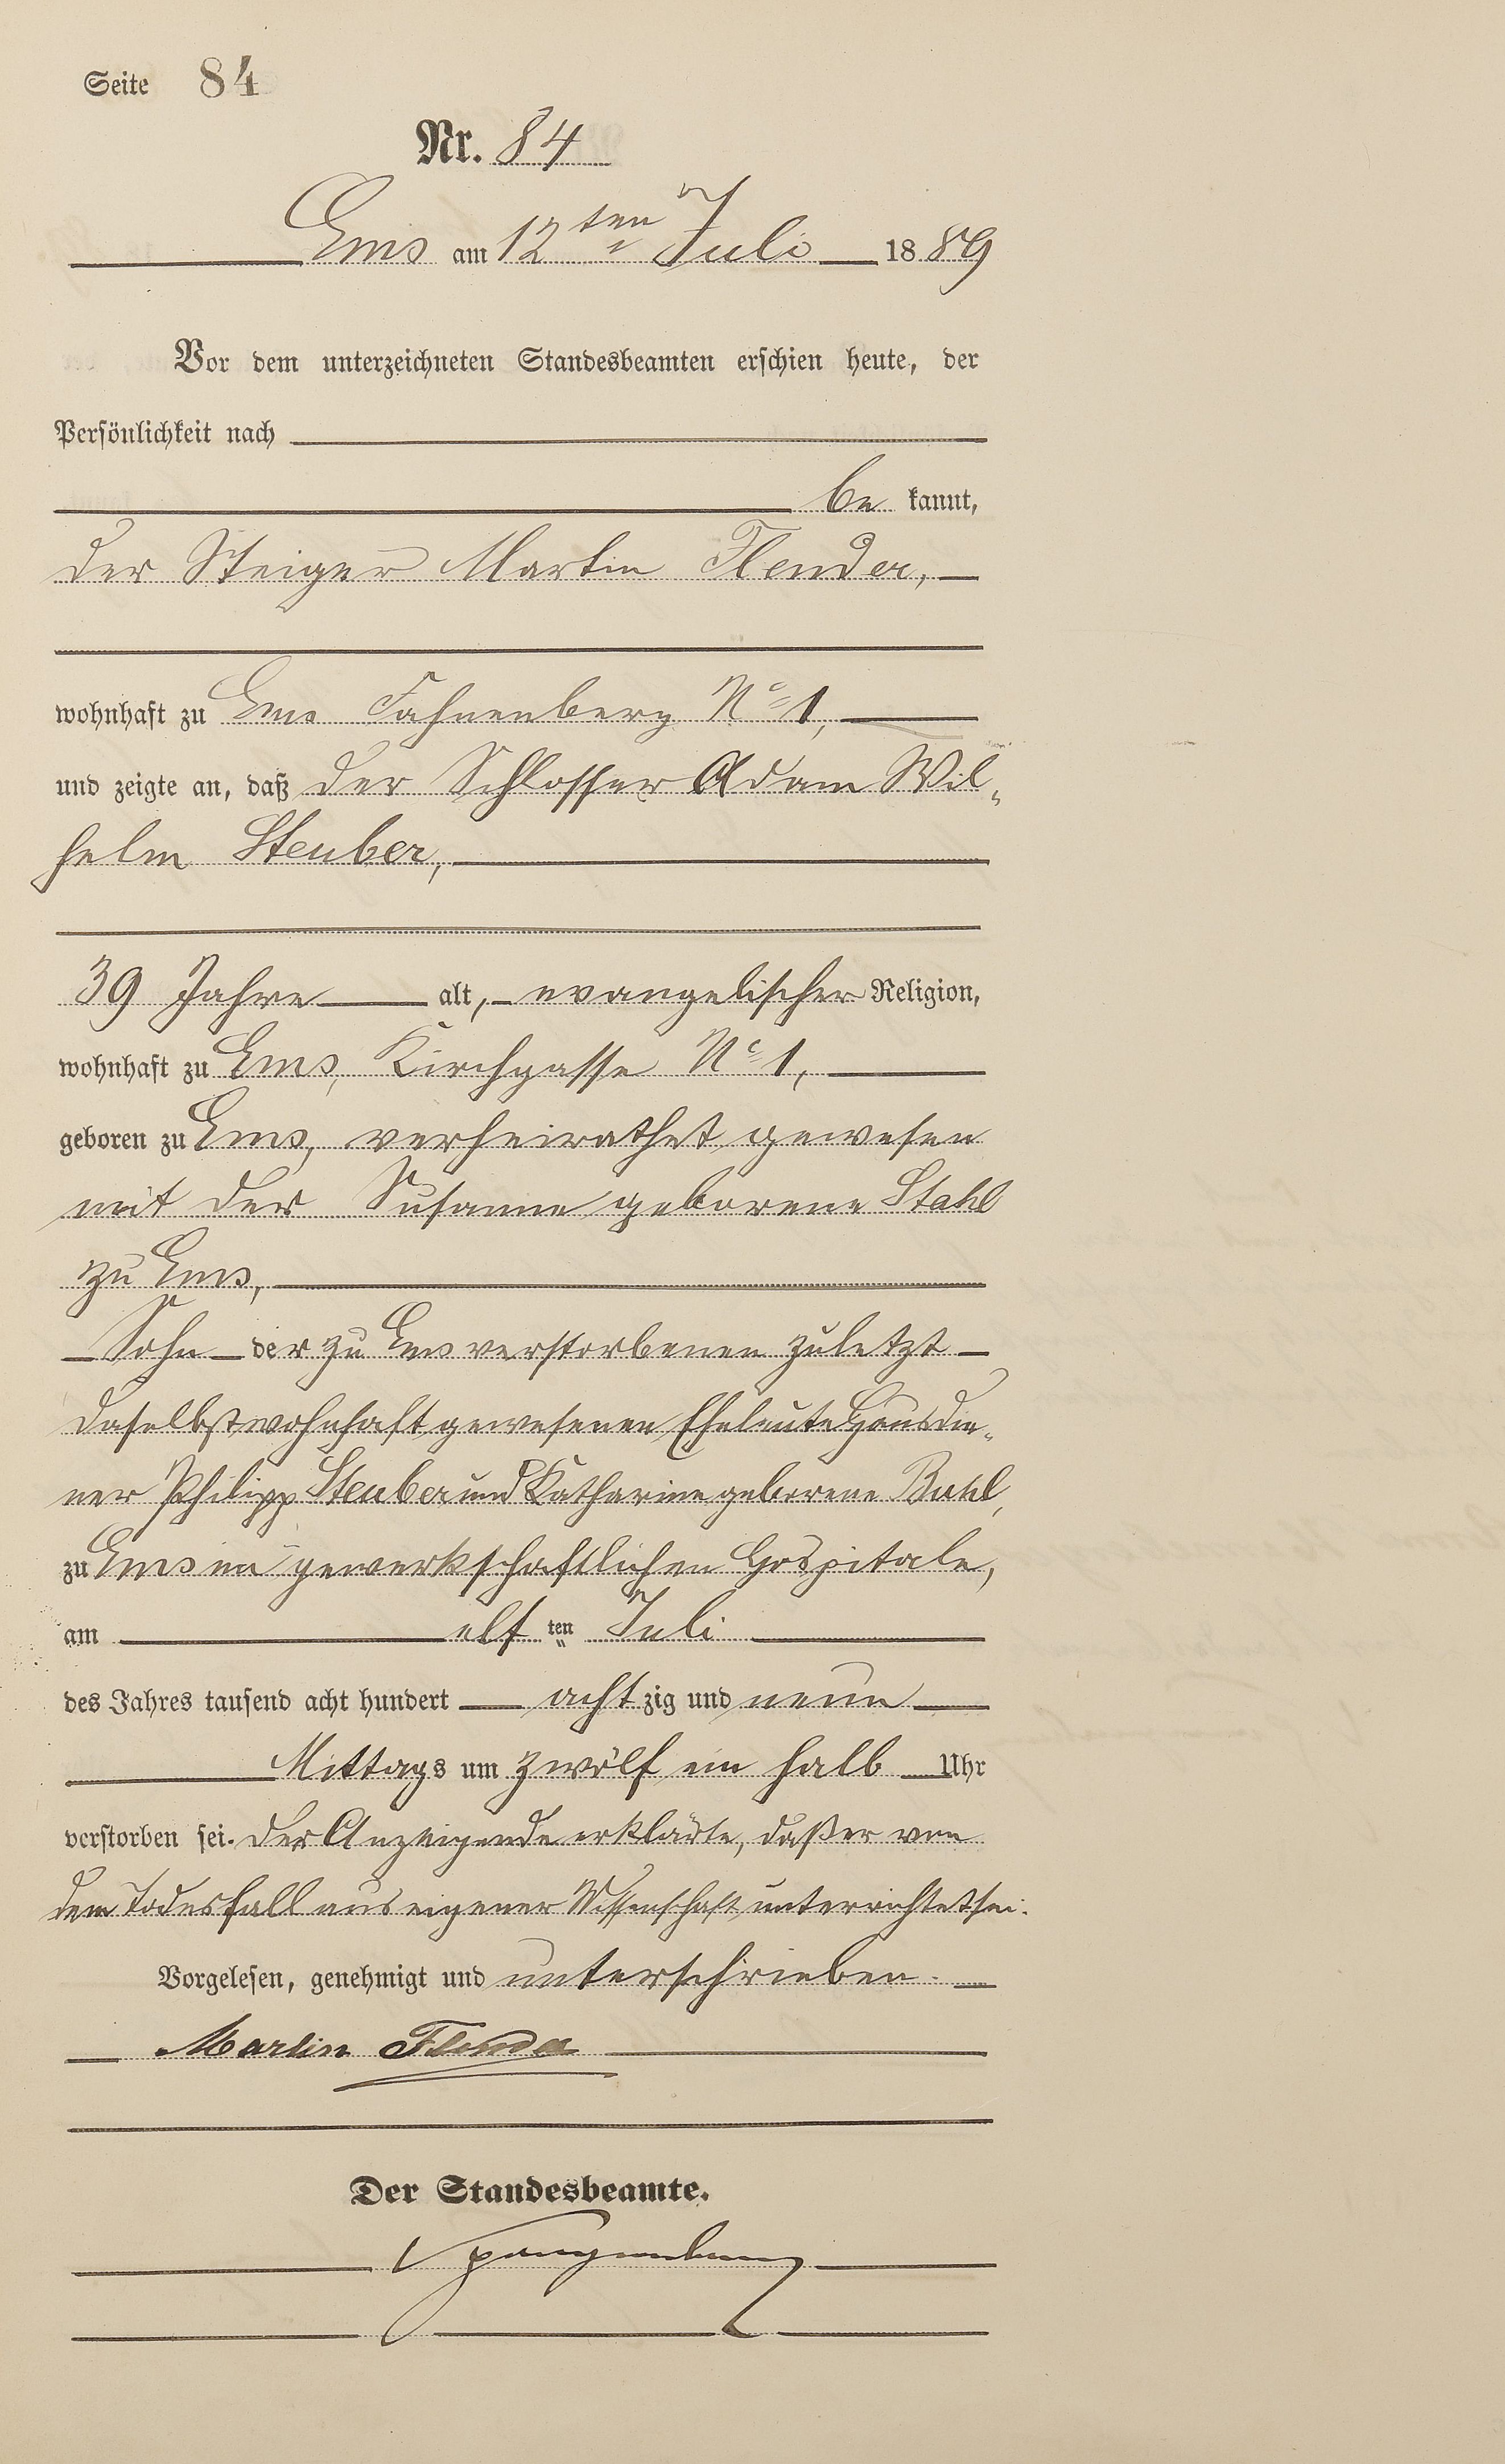 Seite 84
Nr. 84
Ems am 12ten Juli 1889
Vor dem unterzeichneten Standesbeamten erschien heute, der
Persönlichkeit nach
be kannt,
der Steiger Martin Flender,
wohnhaft zu Ems Fahnenberg No 1,
und zeigte an, daß der Schlosser Adam Wil-
helm Steuber,
39 Jahre alt, evangelischer Religion,
wohnhaft zu Ems, Kirchgasse No 1,
geboren zu Ems, verheirathet gewesen
mit der Susanne geborene Stahl
zu Ems,
Sohn der zu Ems verstorbenen zuletzt
daselbst wohnhaft gewesenen Eheleute Hausdie-
ner Philipp Steuber und Katharine geborene
zu Ems im gewerkschaftlichen Hospitale,
am elf ten Juli
des Jahres tausend acht hundert acht zig und neun
Mittags um zwölf ein halb Uhr
verstorben sei. Der Anzeigende erklärte, daß er von
dem Todesfall aus eigener Wissenschaft unterrichtet sei.
Vorgelesen, genehmigt und unterschrieben.
Martin Flender
Der Standesbeamte.
Spangenberg